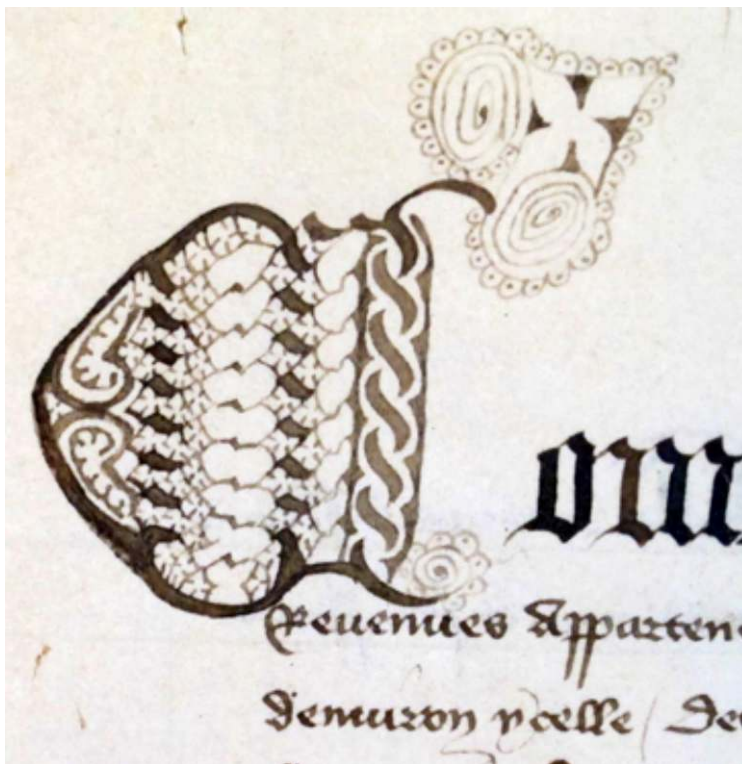 Com
Revenues Apparten
demuron ycelle / De